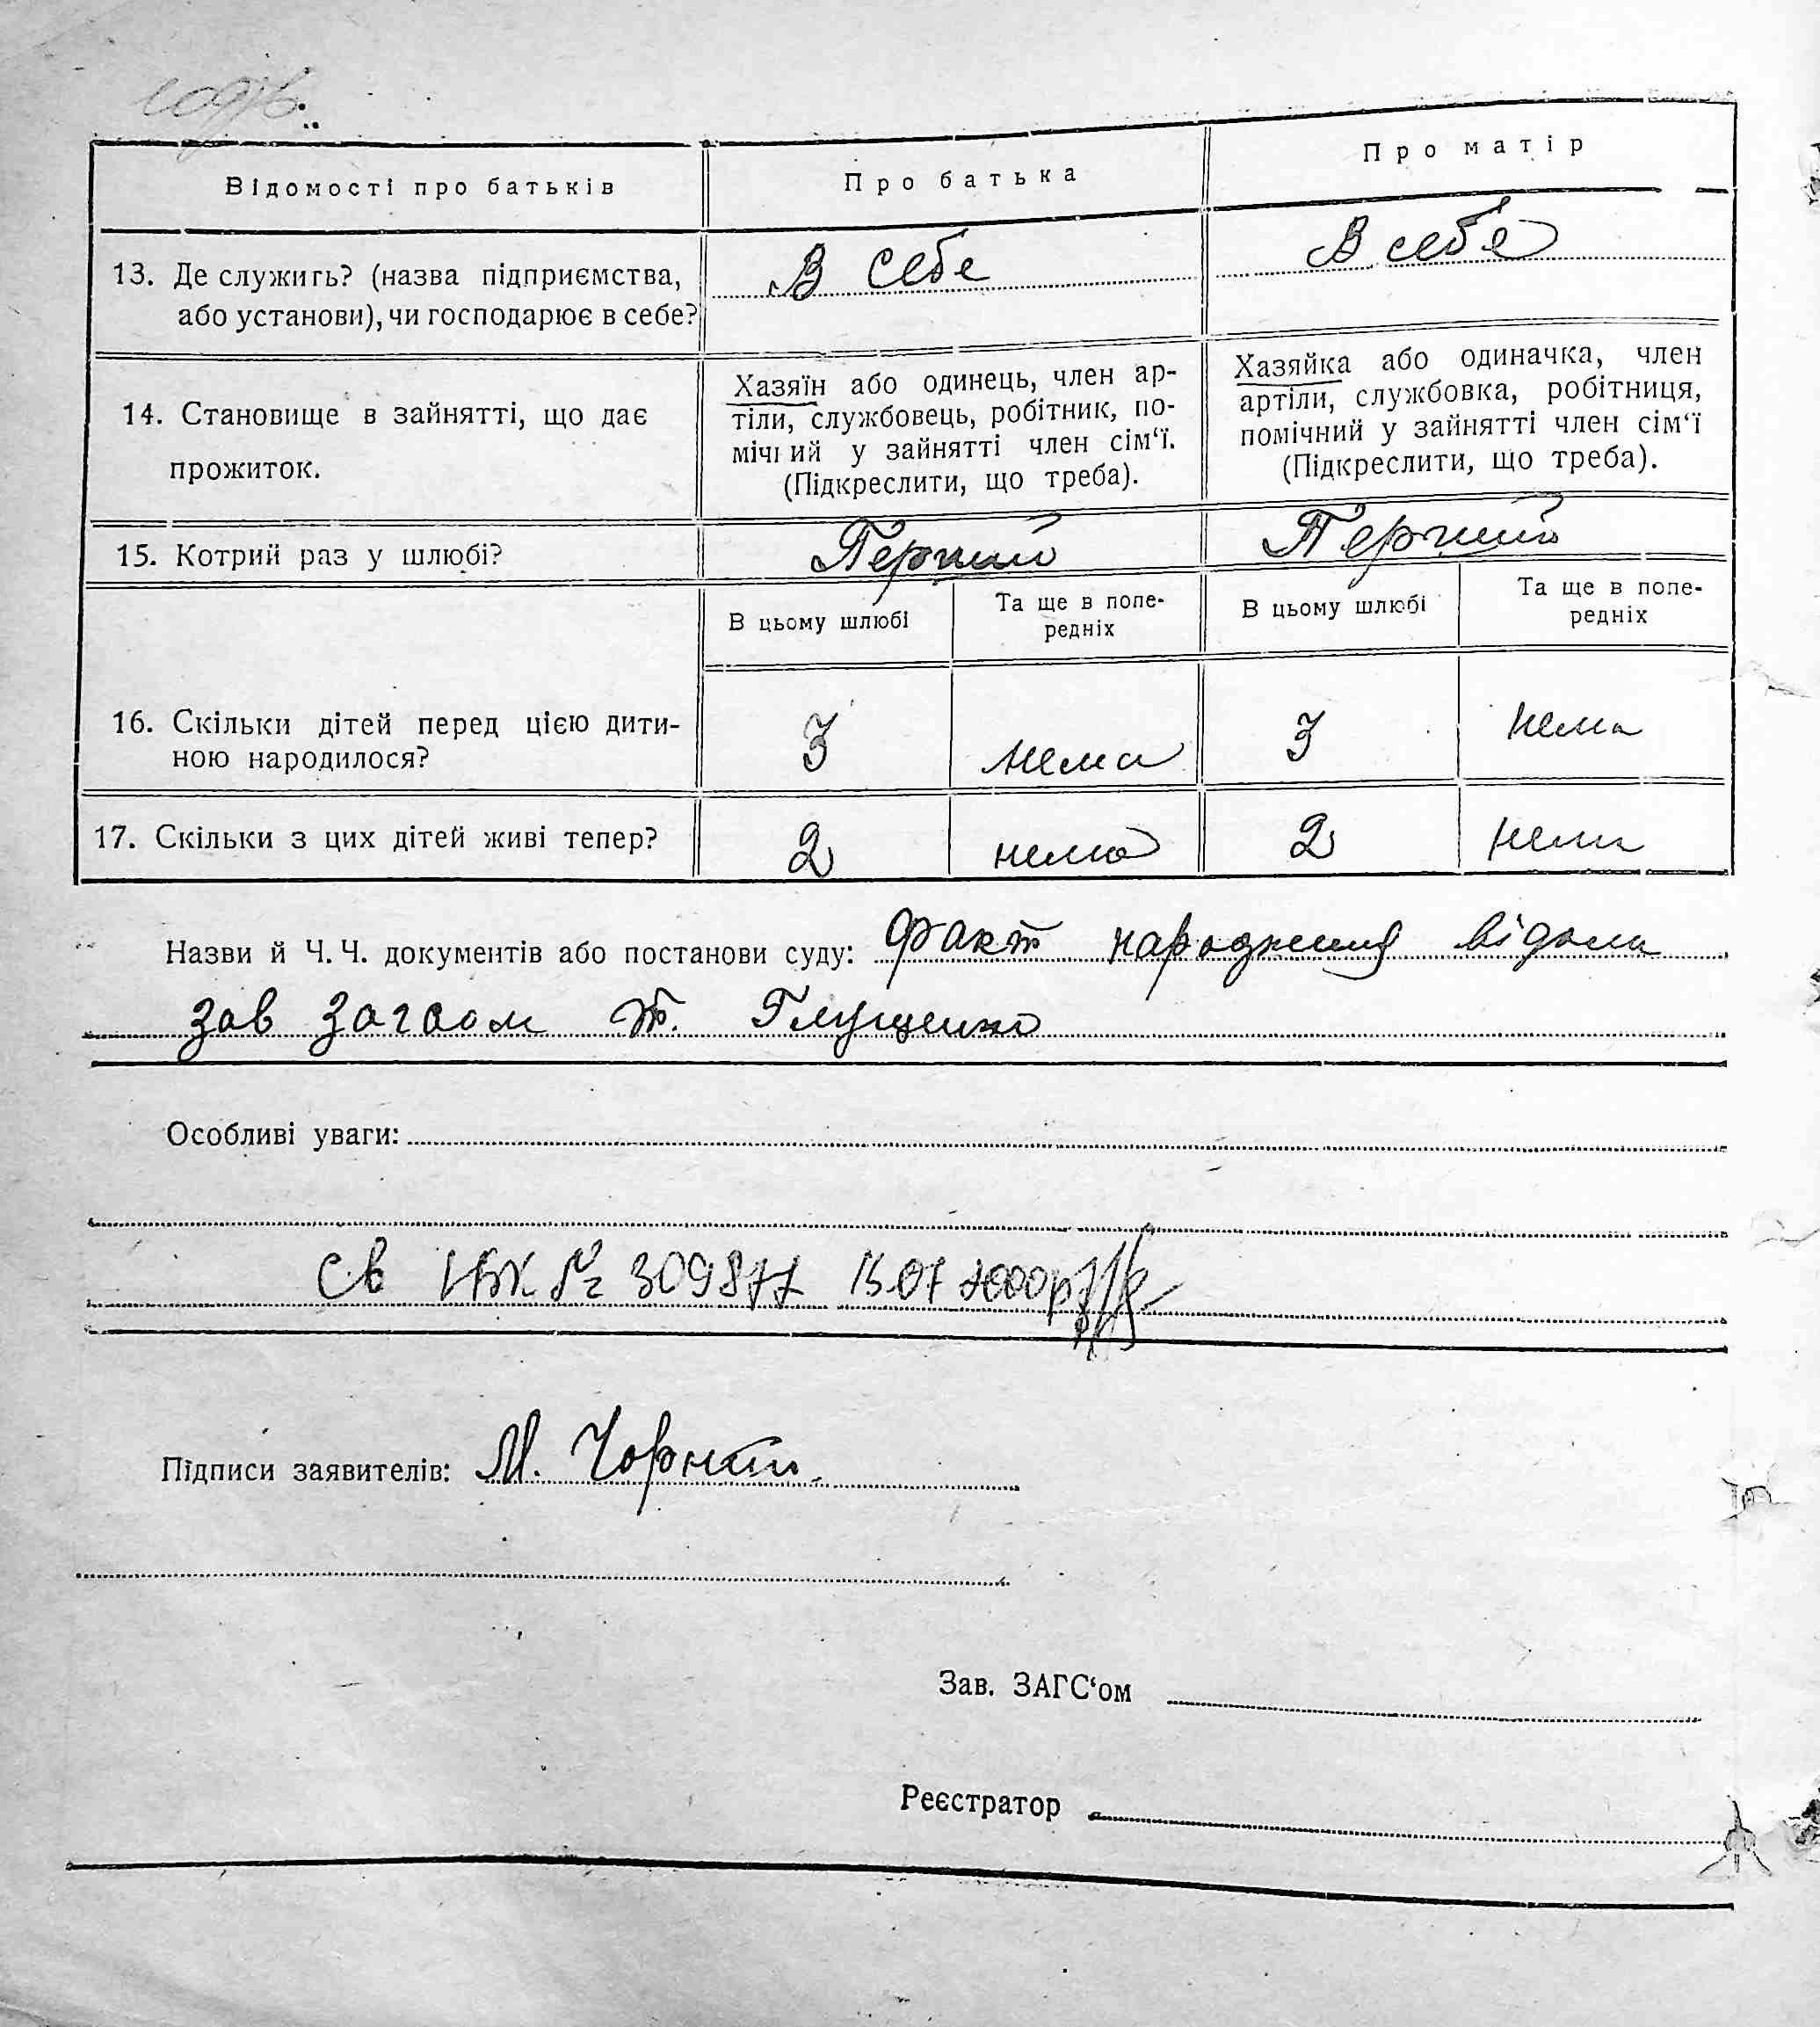 Відомості про батьків
Про батька
Про матір
13. Де служить? (назва підприємства,
або установи), чи господарює в себе?
В себе
В себе
14. Становище в зайнятті, що дає
прожиток.
Хазяїн або одинець, член ар-
тіли, службовець, робітник, по-
мічний у зайнятті член сім‘ї.
(Підкреслити, що треба).
Хазяйка або одиначка, член
артіли, службовка, робітниця,
помічний у зайнятті член сім‘ї
(Підкреслити, що треба).
15. Котрий раз у шлюбі?
Перший
Перший
В цьому шлюбі
Та ще в попе-
редніх
В цьому шлюбі
Та ще в попе-
редніх
16. Скільки дітей перед цією дити-
ною народилося?
3
нема
3
нема
17. Скільки з цих дітей живі тепер?
2
нема
2
нема
Назви й Ч. Ч. документів або постанови суду: Факт народження відоми
зав Загсом т. Глущенко
Особливі уваги:
Св № 309877
Підписи заявителів: М. Чорний
Зав. ЗАГС‘ом
Реєстратор